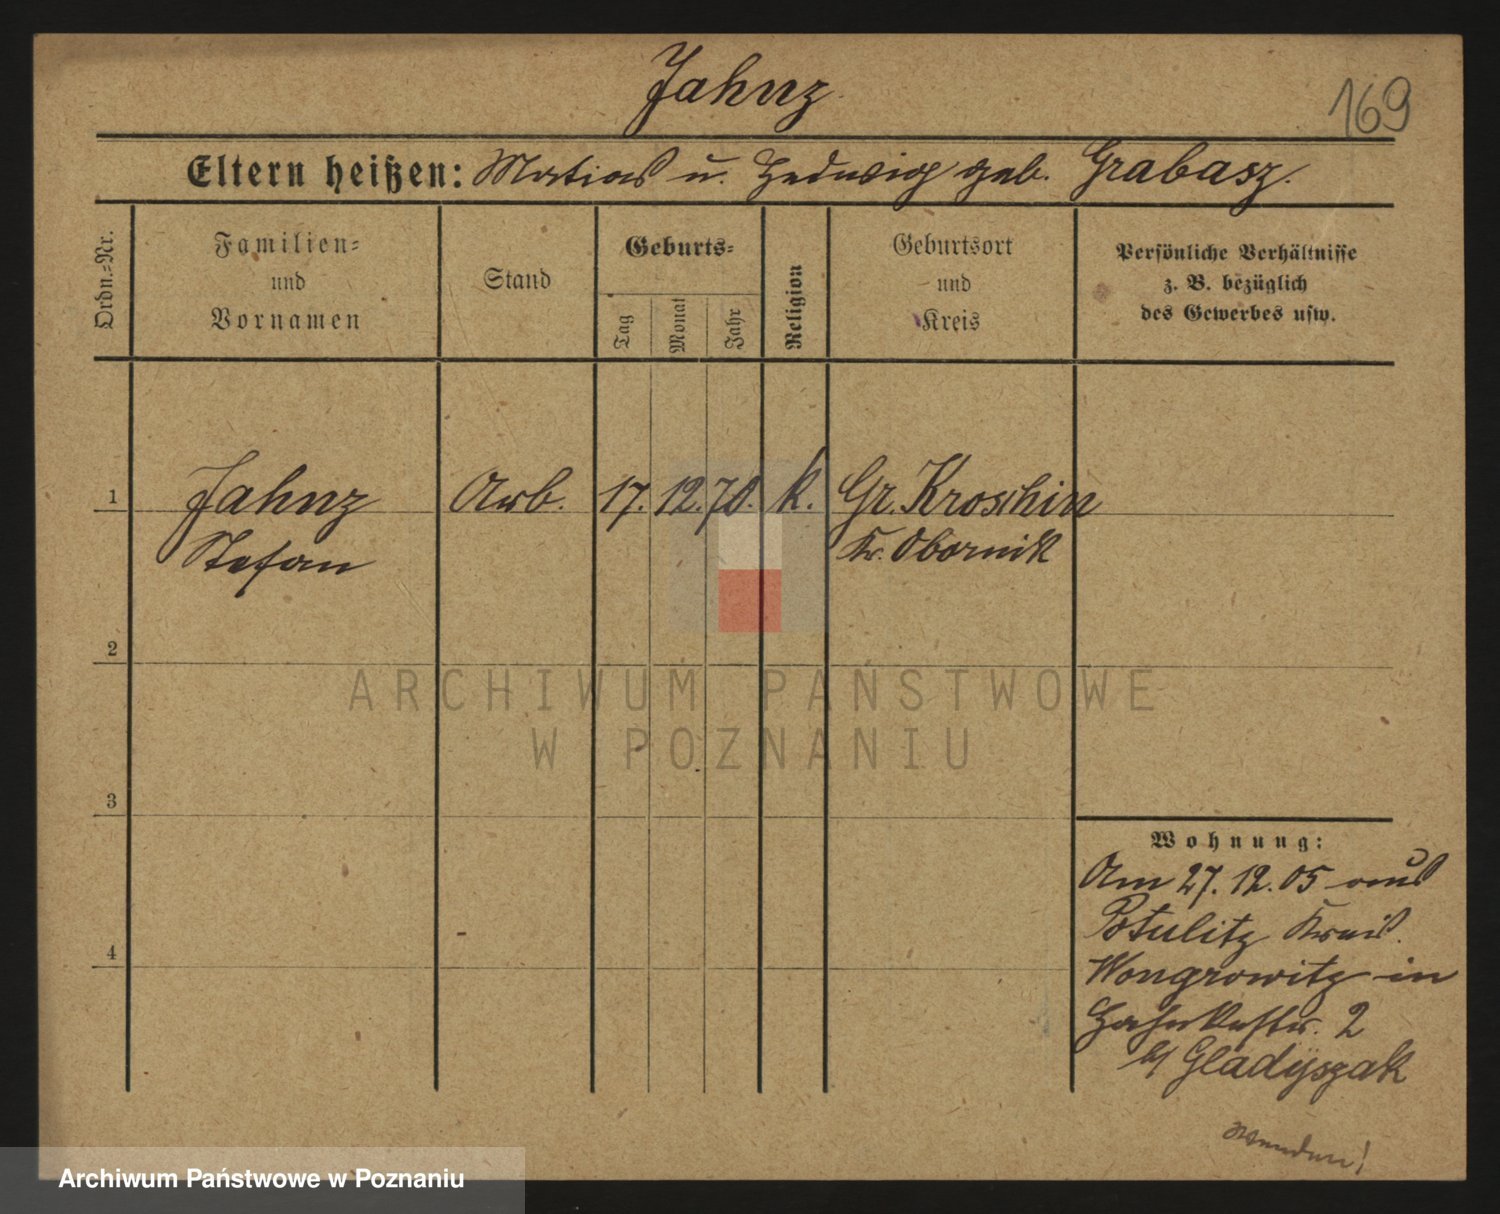 Jahnz
169
Eltern heißen: Matias u. Hedwig geb. Grabasz.
Ordn.=Nr.
Familien=
und
Vornamen
Stand
Geburts=
Tag
Monat
Jahr
Religion
Geburtsort
und
Kreis
Persönliche Verhältnisse
z. B. bezüglich
des Gewerbes usw.
1
Jahnz
Stefan
Arb.
17. 12. 70.
k.
Gr. Kroschin
Kr. Obornik
2
ARCHIWUM PAŃSTWOWE
W POZNANIU
3
Wohnung:
Am 27. 12. 05 aus
Potulitz Kreis.
4
Wongrowitz in
2
b/ Gladyszak
Wenden!
Archiwum Państwowe w Poznaniu